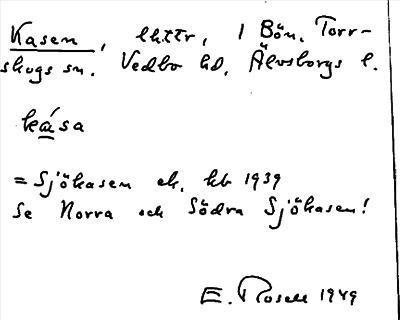 Kasen, lhttr, 1 Bön. Torr-
skogs sn. Vedbo hd, Älvsborgs l.
kása
= Sjökasen ek. kb 1939
Se Norra och Södra Sjökasen!
E. Rosell 1949